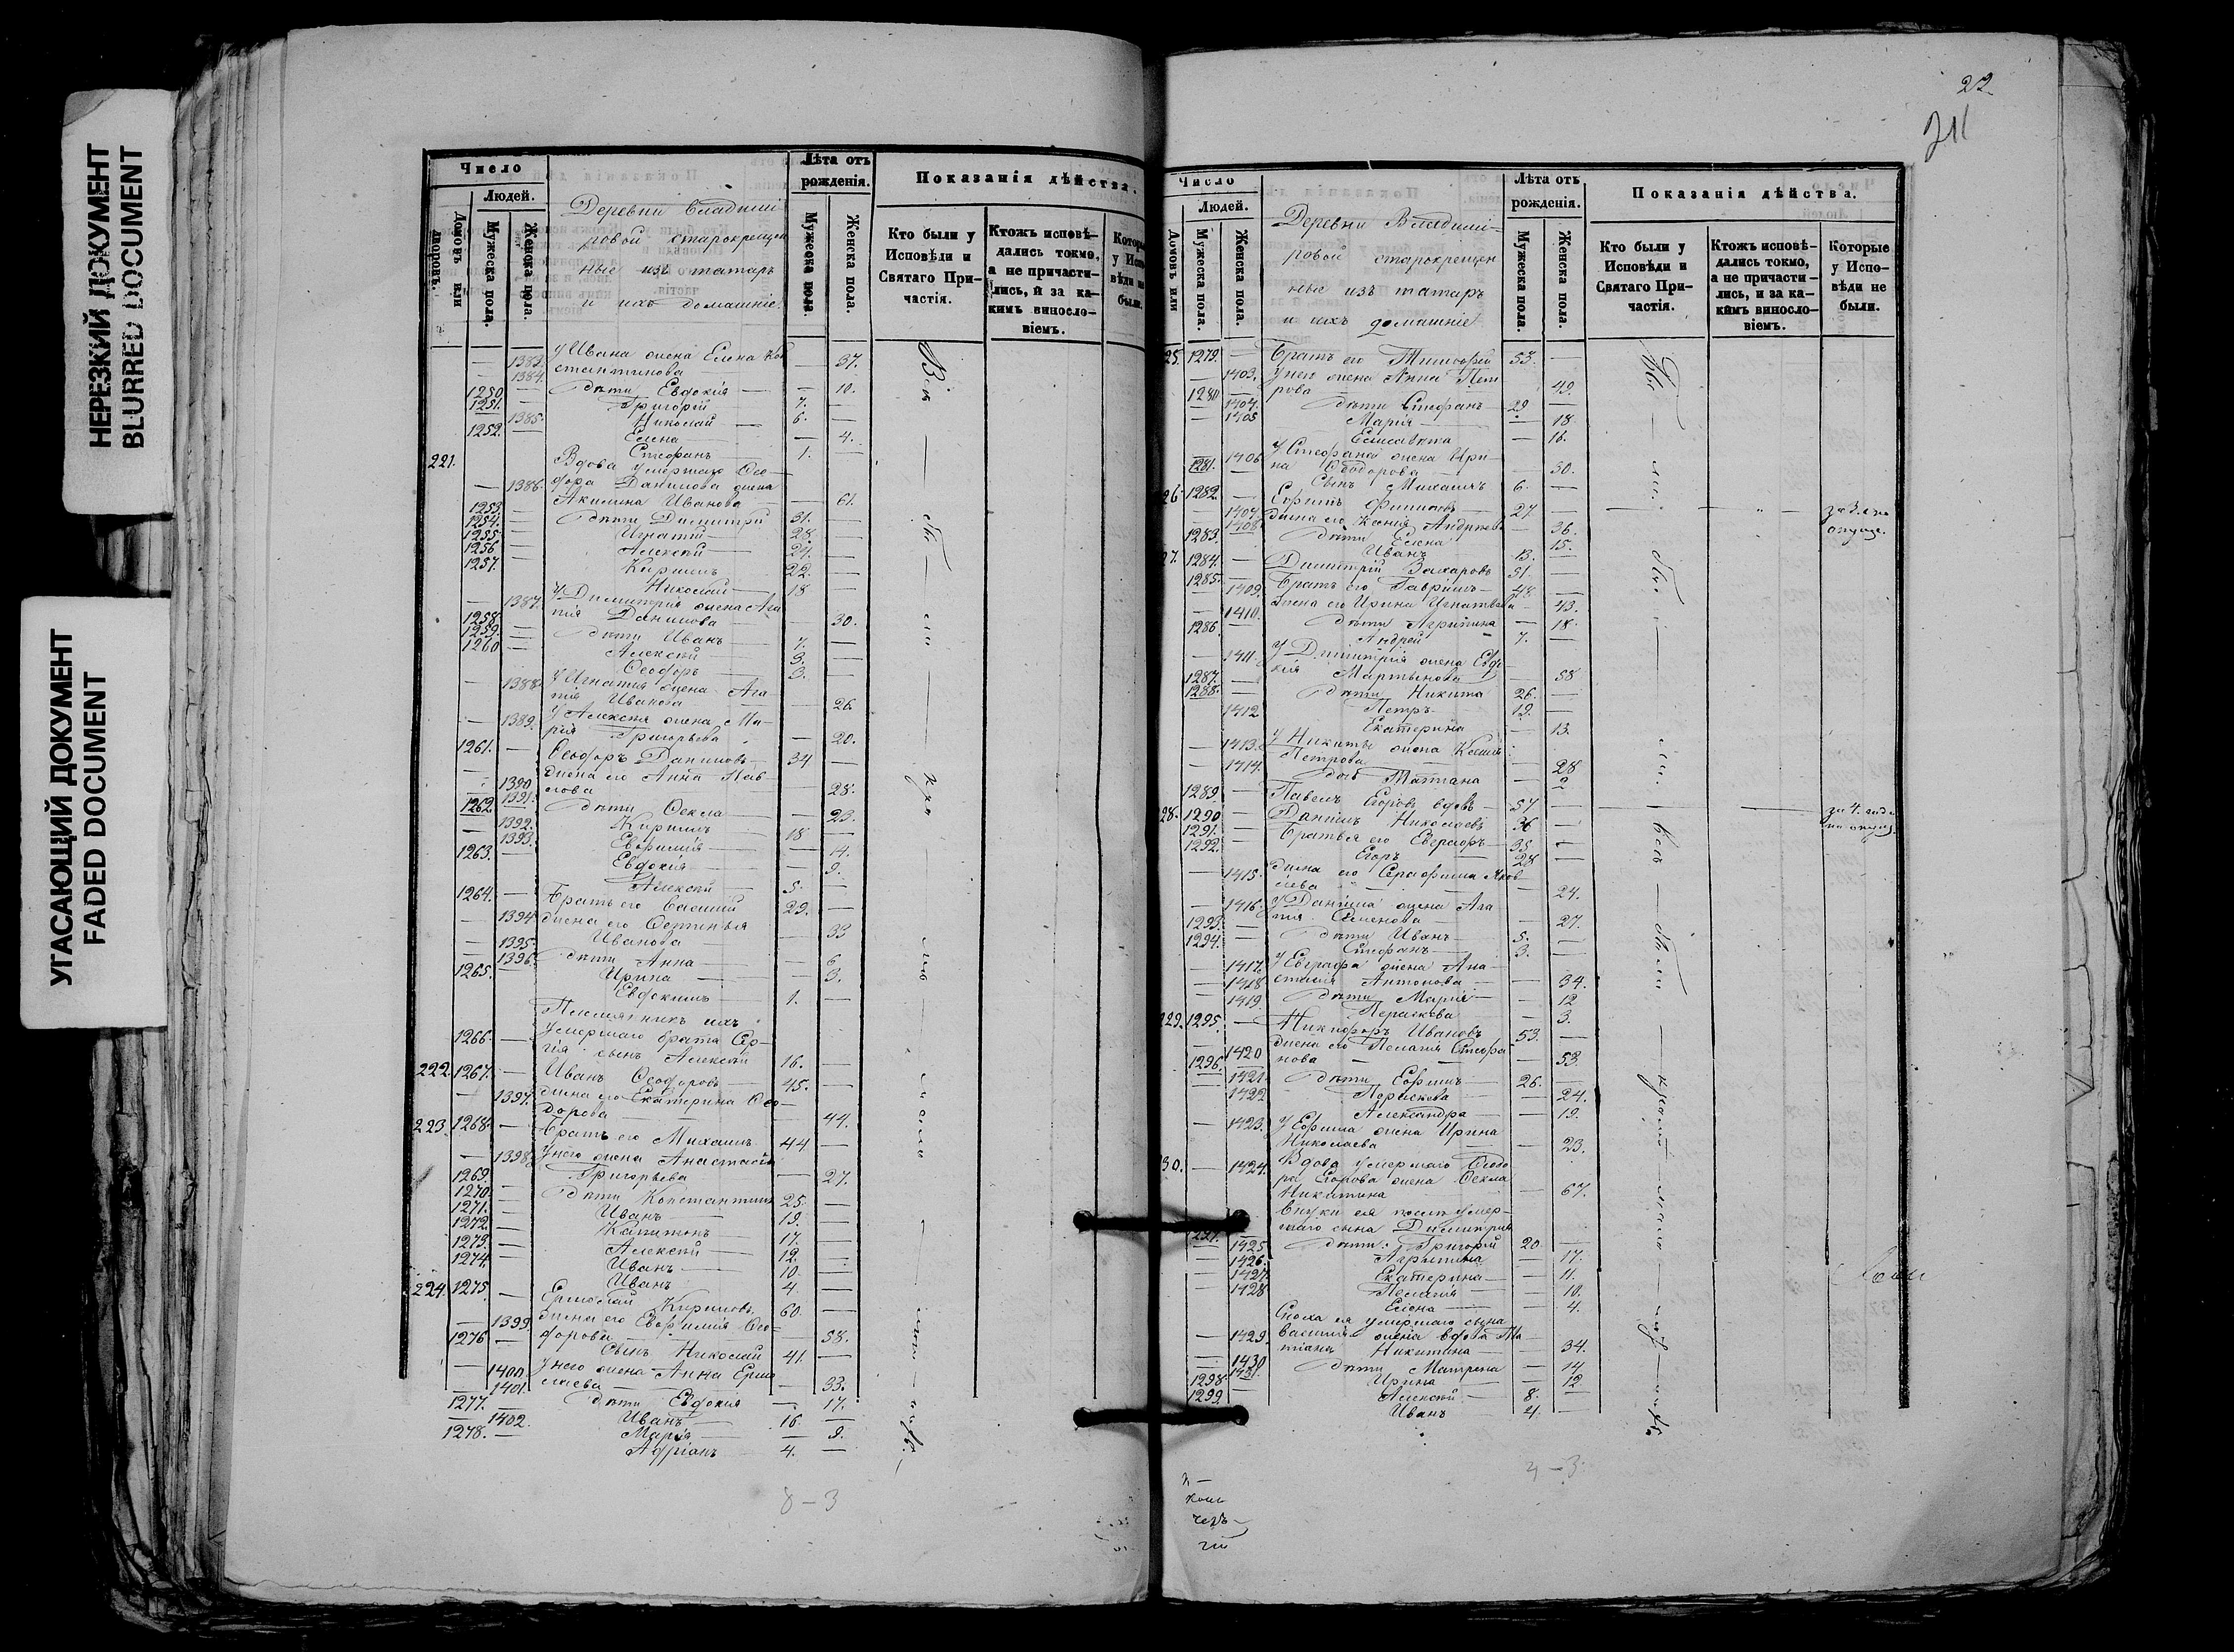 НЕРЕЗКИЙ ДОКУМЕНТ
BLURRED DOCUMENT
УГАСАЮЩИЙ ДОКУМЕНТ
FADED DOCUMENT
Число
Людей.
Домовъ или дворовъ.
Мужеска пола.
Женска пола.
Деревни Владими-
ровой старокрещен
ные изъ татаръ
и ихъ домашніе
Лѣта отъ рожденія.
Мужеска пола.
Женска пола.
Показанія дѣйства.
Кто были у Исповѣди и Святаго Причастія.
Ктожъ исповѣдались токмо, а не причастились, и за какимъ винословіемъ.
1383. У Ивана жена Елена Кон
стантинова 37.
1384. дѣти Евдокія 10.
1250 Григорій 7.
1251. Николай 6.
1385. Елена 4.
1252. Стефанъ 1.
221. Вдова умершаго Ѳео-
дора Данилова жена
1386. Акилина Иванова 61.
1253 дѣти Димитрій 31.
1254. Игнатій 28.
1255. Алексѣй 24.
1256 Кириллъ 22.
1257. Николай 18
1387. У Димитрія жена Ага
пія Данилова 30.
1258. дѣти Иванъ 7.
1259. Алексѣй 3.
1260 Ѳеодоръ 3.
1388. У Игнатія жена Ага
пія Иванова 26.
1389. У Алексѣя жена Ма-
рія Григорьева 20.
1261. Ѳеодоръ Даниловъ 34
1390 жена его Анна Пав-
лова 28.
1391. дѣти Ѳекла 23.
1262. Кириллъ 18
1392. Евфимія 14.
1393. Евдокія 9.
1263. Алексѣй 5.
1264. Братъ его Василій 29.
1394 жена его Устинья
Иванова 33
1395. дѣти Анна 6
1396. Ирина 3.
1265. Евдокимъ 1.
Племянникъ ихъ
умершаго брата Сер-
1266. гія сынъ Алексѣй 16.
222. 1267. Иванъ Ѳеодоровъ 45.
1397. жена его Екатерина Ѳео-
дорова 44.
223. 1268. Братъ его Михаилъ 44
1398. У него жена Анастасія
Григорьева 27.
1269. дѣти Константинъ 25.
1270. Иванъ 19.
1271. Капитонъ 17.
1272. Алексѣй 12.
1273. Иванъ 10.
1274. Иванъ 4.
224. 1275. Ермолай Кириловъ 60.
1399. жена его Евфимія Ѳео-
дорова 58.
1276 Сынъ Николай 41.
1400. У него жена Анна Ермо
лаева 33.
1401. дѣти Евдокія 17.
1277. Иванъ 16.
1402. Марія 9.
1278. Адріанъ 4.
8-3
22
Число
Людей.
Домовъ или
Мужеска пола.
Женска пола.
Деревни Владими-
ровой старокрещен
ные изъ татаръ
и ихъ домашніе
Лѣта отъ рожденія.
Мужеска пола.
Женска пола.
Показанія дѣйства.
Кто были у Исповѣди и Святаго Причастія.
Ктожъ исповѣдались токмо, а не причастились, и за какимъ винословіемъ.
Которые у Исповѣди не были.
25. 1279. Братъ его Тимофей 53.
1403. У него жена Анна Пет
рова 49.
1280 дѣти Стефанъ 29
1404. Марія 18
1405 Елисавета 16.
1406 У Стефана жена Ири-
на Ѳеодорова 30.
1281. Сынъ Михаилъ 6.
26. 1282. Ефимъ Филиповъ 27
1407. жена его Ксенія Андреева 36.
1408. дѣти Елена 15.
1283. Иванъ 13.
27. 1284. Димитрій Захаровъ 51.
1285. Братъ его Гавріилъ 48.
1409. жена его Ирина Игнатьева 43.
1410. дѣти Агрипина 18.
1286. Андрей 7.
1411. У Димитрія жена Евдо
кія Мартынова 58
1287. дѣти Никита 26.
1288. Петръ 19.
1412. Екатерина 13.
1413. У Никиты жена Ксенія
Петрова 28
1414. дочь Татіана 2
1289. Павелъ Егоровъ вдовъ 57
28. 1290 Даніилъ Николаевъ 36
1291. Братья его Евграфъ 35.
1292. Егоръ 28
1415. жена его Серафима Яков
лева 24.
1416. У Даніила жена Ага
пія Семенова 27.
1293. дѣти Иванъ 5.
1294. Стефанъ 3.
1417. У Евграфа жена Ана
стасія Антонова 34.
1418 дѣти Марія 12
1419 Пераскева 3.
229. 1295. Никифоръ Ивановъ 53.
1420 жена его Пелагія Стефа
нова 53.
1296. дѣти Ефимъ 26.
1421. Пораскева 24.
1422 Александра 19.
1423. У Ефима жена Ирина
Николаева 23.
30. 1424. Вдова умершаго Ѳеодо
ра Егорова жена Ѳекла
Никитина 67.
Внуки ея послѣ умер-
шаго сына Димитрія
1297. дѣти: Григорій 20
1425 Агрипина 17.
1426. Екатерина 11.
1427. Пелагія 10.
1428 Елена 4.
Сноха ея умершаго сына
Василія жена вдова Та
1429. тіана Никитина 34.
1430 дѣти Матрена 14
1431. Ирина 12
1298. Алексѣй 8.
1299. Иванъ 4.
4-3